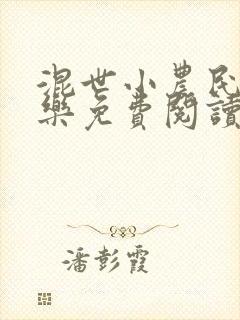 混世小農民
樂免費閱讀
潘彭霞